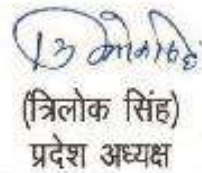 (त्रिलोक सिंह)
प्रदेश अध्यक्ष